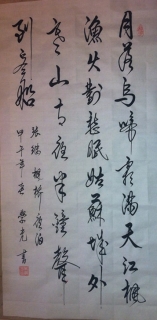 月落烏啼霜滿天江楓
漁火對愁眠姑蘇城外
寒山寺夜半鐘聲
到客船
張繼楓橋夜泊
甲午年 書